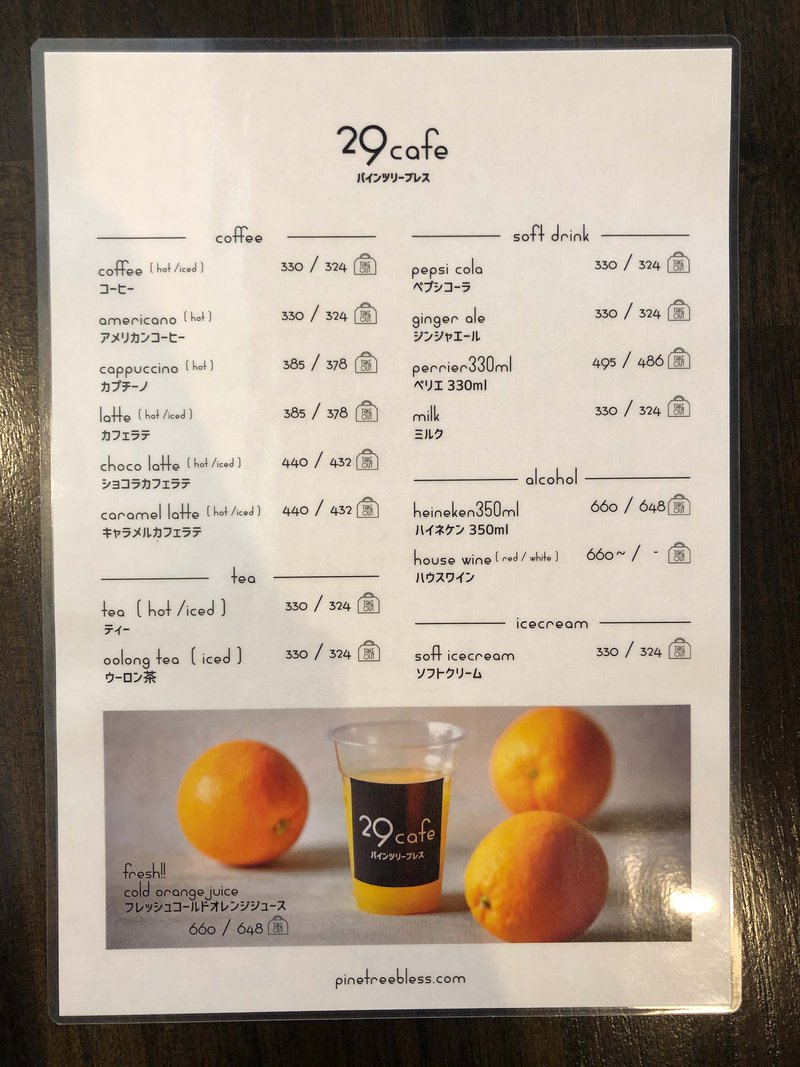 29cafe
パインツリーブレス
coffee
coffee (hot/iced) 330 / 324 TAKE OUT
コーヒー
americano (hot) 330 / 324 TAKE OUT
アメリカンコーヒー
cappuccino (hot) 385 / 378 TAKE OUT
カプチーノ
latte (hot/iced) 385 / 378 TAKE OUT
カフェラテ
choco latte (hot/iced) 440 / 432 TAKE OUT
ショコラカフェラテ
caramel latte (hot/iced) 440 / 432 TAKE OUT
キャラメルカフェラテ
tea
tea (hot/iced) 330 / 324 TAKE OUT
ティー
oolong tea (iced) 330 / 324 TAKE OUT
ウーロン茶
soft drink
pepsi cola 330 / 324 TAKE OUT
ペプシコーラ
ginger ale 330 / 324 TAKE OUT
ジンジャエール
perrier330ml 495 / 486 TAKE OUT
ペリエ 330ml
milk 330 / 324 TAKE OUT
ミルク
alcohol
heineken350ml 660 / 648 TAKE OUT
ハイネケン 350ml
house wine (red / white) 660~ / - TAKE OUT
ハウスワイン
icecream
soft icecream 330 / 324 TAKE OUT
ソフトクリーム
29cafe
パインツリーブレス
fresh!!
cold orange juice
フレッシュコールドオレンジジュース
660 / 648 TAKE OUT
pinetreebless.com